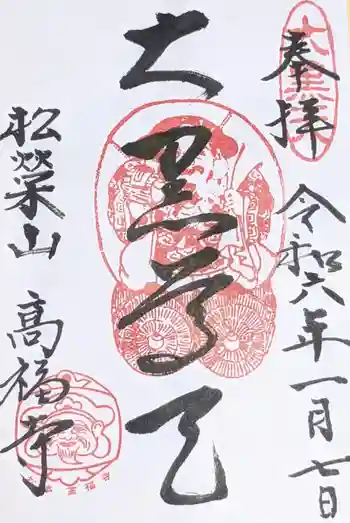 奉拝
令和六年一月七日
大黒尊天
松榮山
高福寺